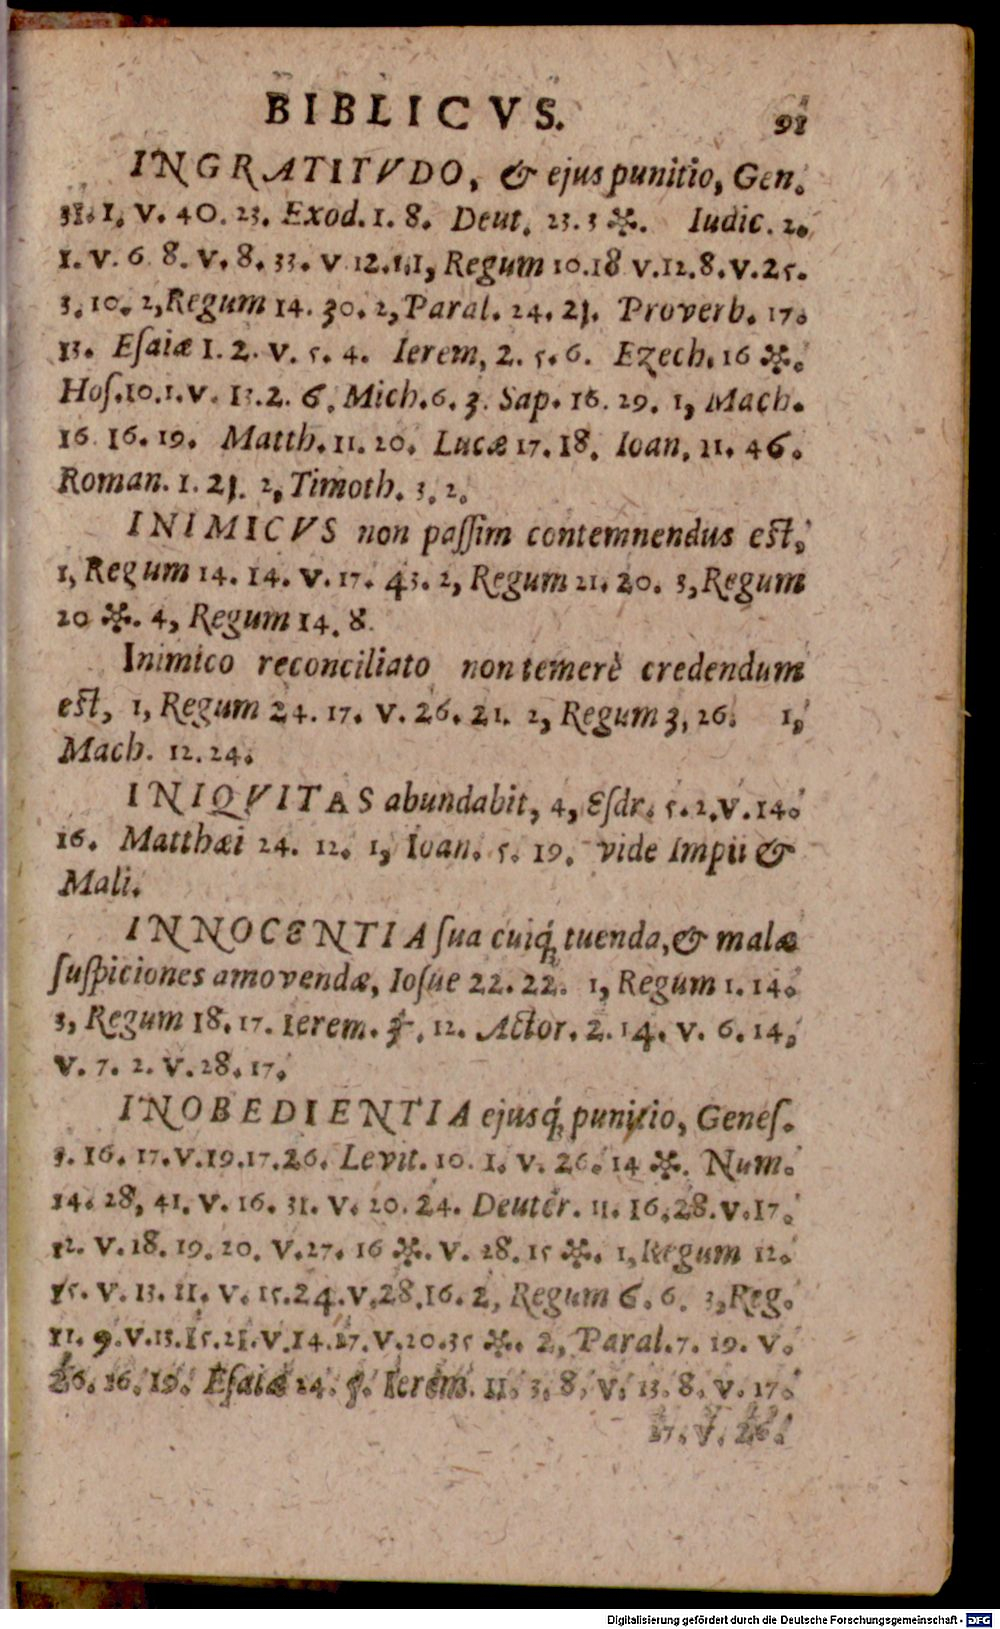 BIBLICVS. 91
INGRATITVDO, & ejus punitio, Gen.
31. 1. v. 40. 23. Exod. 1. 8. Deut. 23. 3 ✻. Iudic. 2.
1. v. 6 8. v. 8. 33. v 12. 1. 1, Regum 10. 18 v. 12. 8. v. 25.
3. 10. 2, Regum 14. 30. 2, Paral. 24. 21. Proverb. 17.
13. Eſaiæ 1. 2. v. 5. 4. Ierem, 2. 5. 6. Ezech. 16 ✻.
Hoſ. 10. 1. v. 13. 2. 6. Mich. 6. 3. Sap. 16. 29. 1, Mach.
16 16. 19. Matth. 11. 20. Lucæ 17. 18. Ioan. 11. 46.
Roman. 1. 21. 2, Timoth. 3. 2.
INIMICVS non paſſim contemnendus eſt,
1, Regum 14. 14. v. 17. 43. 2, Regum 21. 20. 3, Regum
20 ✻. 4, Regum 14. 8.
Inimico reconciliato non temerè credendum
eſt, 1, Regum 24. 17. v. 26. 21. 2, Regum 3, 26. 1,
Mach. 12. 24.
INIQVITAS abundabit, 4, Eſdr. 5. 2. v. 14.
16. Matthæi 24. 12. 1, Ioan. 5. 19. vide Impii &
Mali.
INNOCENTIA ſua cuiq́; tuenda, & malæ
ſuſpiciones amovendæ, Ioſue 22. 22. 1, Regum 1. 14.
3, Regum 18. 17. Ierem. 12. Actor. 2. 14. v. 6. 14,
v. 7. 2. v. 28. 17.
INOBEDIENTIA ejusq́; punitio, Geneſ.
3. 16. 17. v. 19. 17. 26. Levit. 10. 1. v. 26. 14 ✻. Num.
14. 28, 41. v. 16. 31. v. 20. 24. Deuter. 11. 16. 28. v. 17.
12. v. 18. 19. 20. v. 27. 16 ✻. v. 28. 15 ✻. 1, Regum 12.
15. v. 13. 11. v. 15. 24. v. 28. 16. 2, Regum 6. 6. 3, Reg.
11. 9. v. 13. 15. 21. v. 14. 27. v. 20. 35 ✻. 2, Paral. 7. 19. v.
26. 16. 19. Eſaiæ 24. 5. Ierem. 11. 3. 8. v. 13. 8. v. 17.
27. v. 26.
Digitalisierung gefördert durch die Deutsche Forschungsgemeinschaft - DFG